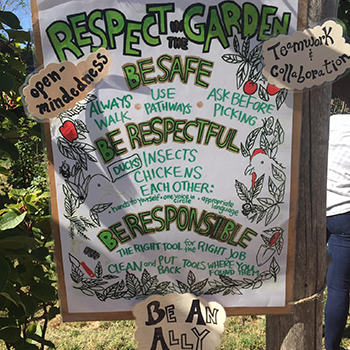 RESPECT IN THE GARDEN
open-mindedness
Teamwork & Collaboration
BE SAFE
ALWAYS WALK • USE PATHWAYS • ASK BEFORE PICKING
BE RESPECTFUL
DUCKS INSECTS
CHICKENS
EACH OTHER:
• hands to yourself • one voice in circle • appropriate language
BE RESPONSIBLE
THE RIGHT TOOL for the RIGHT JOB
CLEAN and PUT BACK TOOLS WHERE YOU FOUND THEM
BE AN ALLY